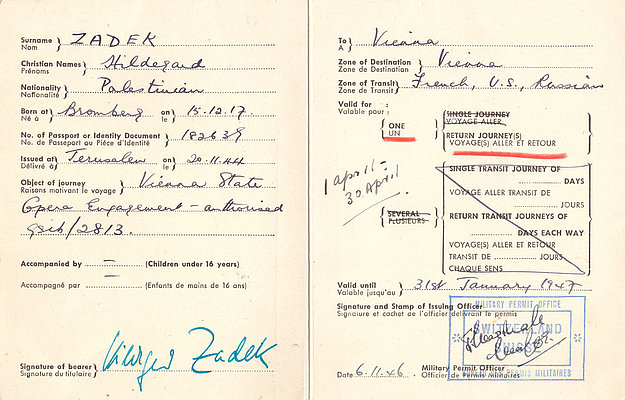 Surname } ZADEK
Nom
Christian Names } Hildegard
Prénoms
Nationality } Palestinian
Nationalité
Born at } Bromberg on } 15.12.17.
Né à le
No. of Passport or Identity Document } 182639
No. de Passeport ou Pièce d'Identité
Issued at } Jerusalem on } 20.11.44
Délivré à le
Object of journey } Vienna State
Raisons motivant le voyage
Opera Engagement - authorised
/2813.
Accompanied by — (Children under 16 years)
Accompagné par — (Enfants de moins de 16 ans)
Signature of bearer } Zadek
Signature du titulaire
To } Vienna
A
Zone of Destination } Vienna
Zone de Destination
Zone of Transit } French, U.S., Russian
Zone de Transit
Valid for :
Valable pour :
ONE
UN
SINGLE JOURNEY
VOYAGE ALLER
RETURN JOURNEY(S)
VOYAGE(S) ALLER ET RETOUR
1 April -
30 April
SEVERAL
PLUSIEURS
SINGLE TRANSIT JOURNEY OF
DAYS
VOYAGE ALLER TRANSIT DE
JOURS
RETURN TRANSIT JOURNEYS OF
DAYS EACH WAY
VOYAGE(S) ALLER ET RETOUR
TRANSIT DE JOURS
CHAQUE SENS
Valid until } 31st January 1947
Valable jusqu'au
Signature and Stamp of Issuing Officer
Signature et cachet de l'officier délivrant le permis
MILITARY PERMIT OFFICE
SWITZERLAND
SUISSE
PERMIS MILITAIRES
Date 6.11.46
Military Permit Officer
Officier de Permis Militaires